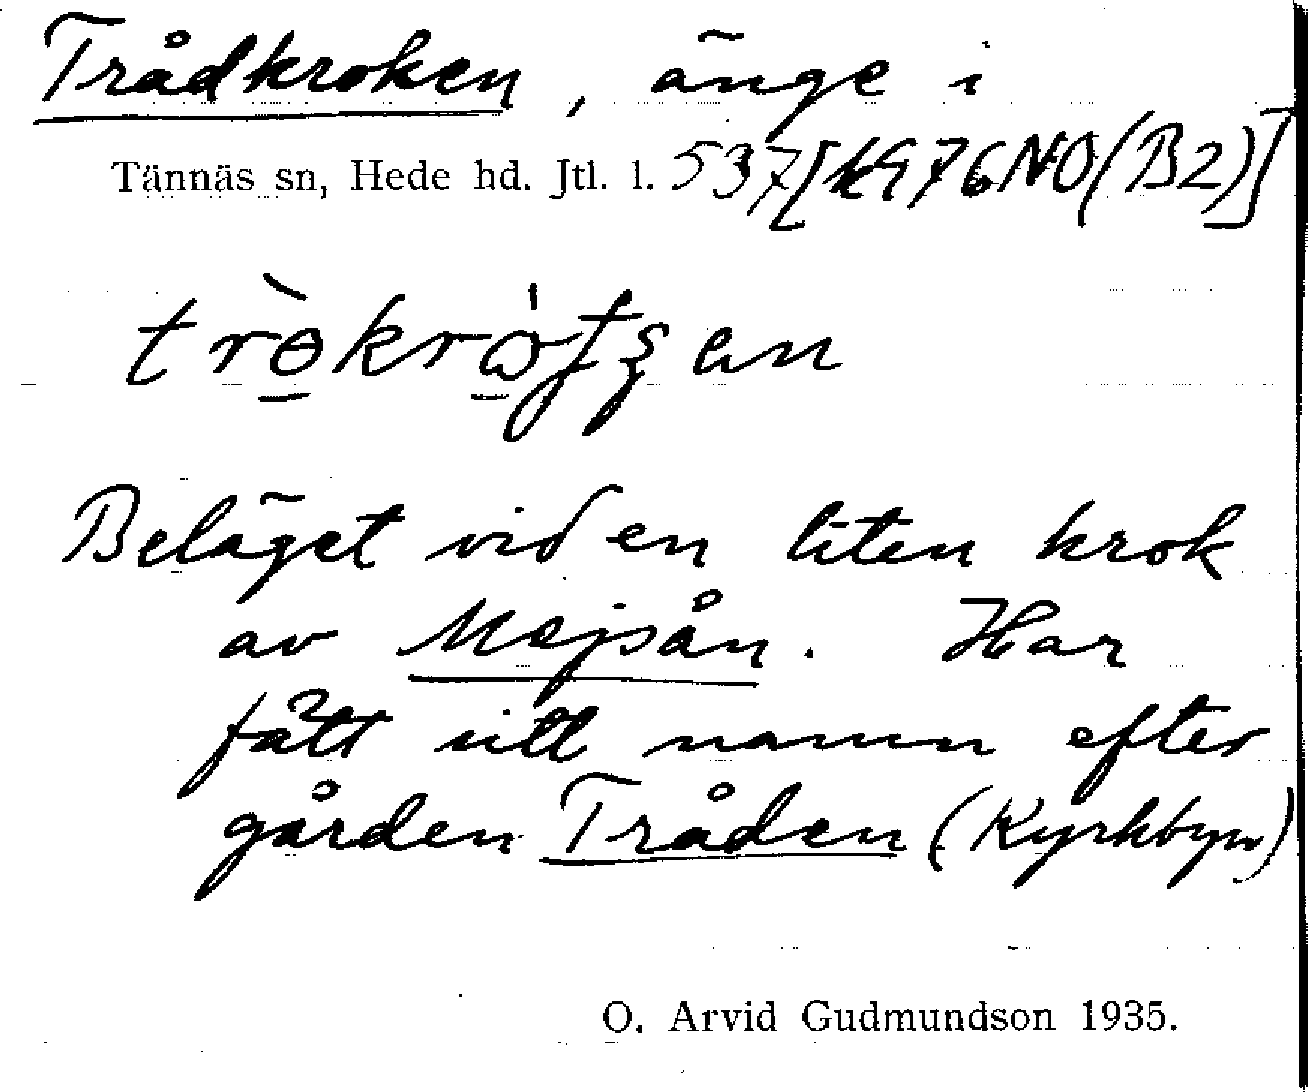 Trådkroken, änge i
Tännäs sn, Hede hd. Jtl. l. 537[1976NO(B2)]
Beläget vid en liten krok
av Mejsån. Har
fått sitt namn efter
gården Tråden (Kyrkbyn)
O. Arvid Gudmundson 1935.